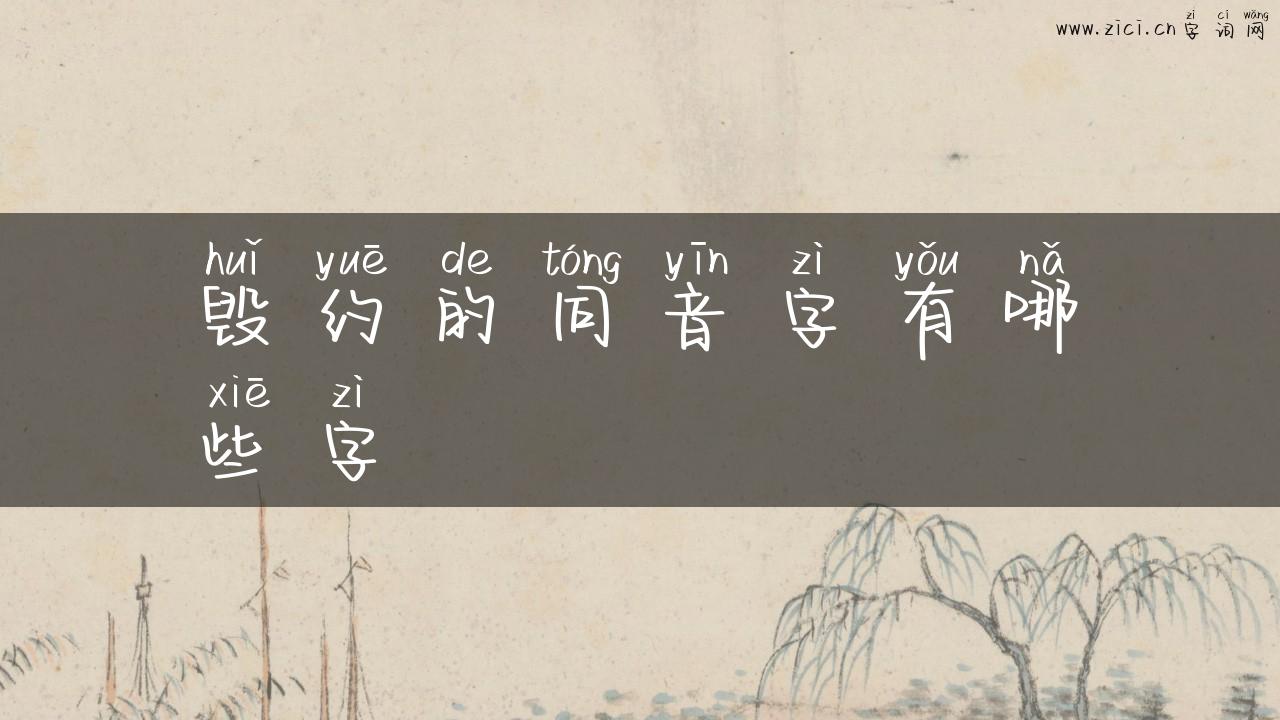 zì cí wǎng
www.zici.cn字词网
huǐ yuē de tóng yīn zì yǒu nǎ
毁约的同音字有哪
xiē zì
些字